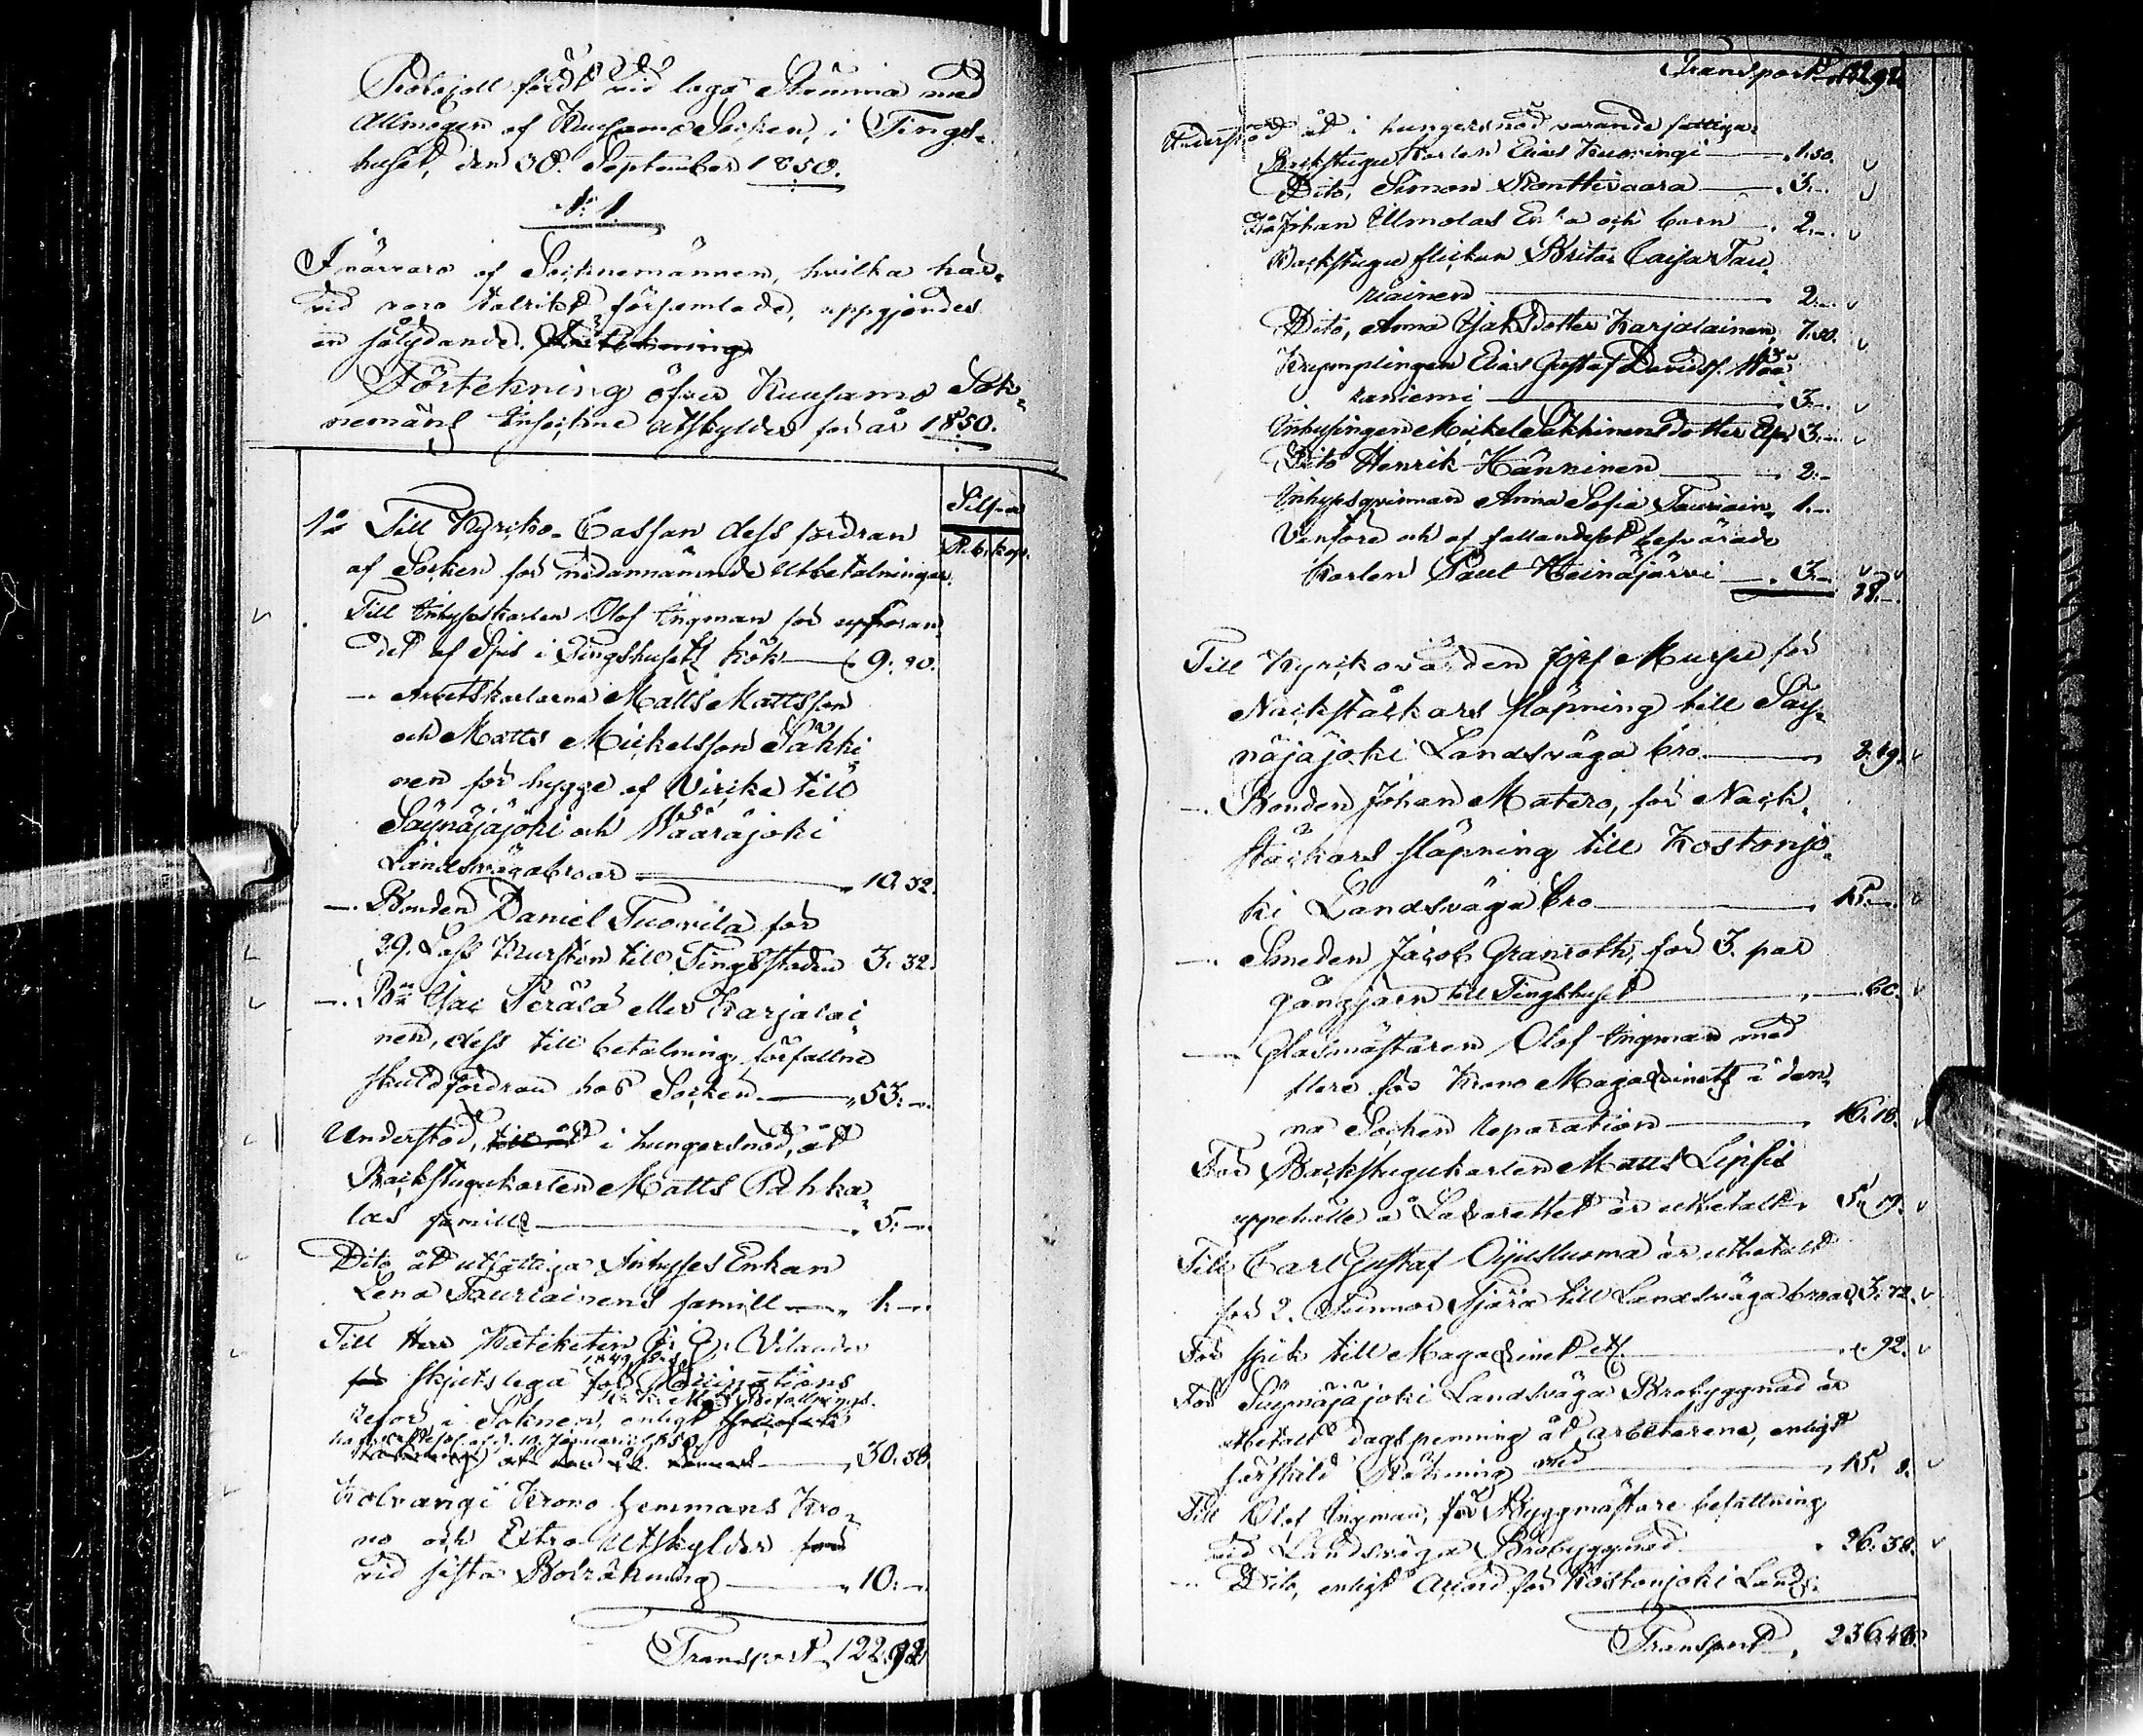 Protocoll fördt vid laga Stämma med
Allmogen af Kuusamo Socken, i Tings-
huset, den 30. September 1850.
N:o 1.
I närvaro af Socknemännen, hvilka här-
vid voro talrikt församlade, uppgjordes
en sålydande.
Förtekning öfver Kuusamo Sok-
nemäns Insockne Utskylder för år 1850.
Silfver
Rub. kop.
1:o Till Kyrko-Cassan dess fordran
af Socken för nedannämnde Utbetalningar.
Till Inhyseskarlen Olof Ingman för uppföran
det af Spis i Tingshusets kök — 9. 90.
— Arbetskarlarne Matts Mattsson
och Matts Mickelsson Säkki
nen för hygge af Virike till
Säynäjäjoki och Määräjoki
Landsvägabroar — 10. 32.
— Bonden Daniel Tuovila för
29. Lass Mursten till Tingsstaden 3. 32.
— B:n Isac Perälä eller Karjalai
nen, dess till betalning förfallne
skuldfordran hos Socken — 53. —
Understöd, i hungersnöd, åt
Backstugukarlen Matts Pahka-
las famille — 5. —
Dito åt utfattiga Inhyses Enkan
Lena Tauriainens famill — 1. —
Till Herr Katecheten Vilander
skjutslega för 1849 års Vaccinations
resor i Soknen, enligt K. Befallnings-
hafv. Resol. af d. 10 Januarii 1850 — 30. 38.
Kolvangi Krono hemmans Kro-
no och Extra Utskylder
vid sista Bolräkning — 10. —
Transport 122. 92.
Transport 122. 92.
Understöd åt i hungersnöd varande fattiga:
Backstugu Karlen Elias Kuoringi — 1. 50.
Dito, Simon Ronttivaara — 3. —
Johan Ulmolas Enka och barn — 2. —
Backstugu flickan Brita Caisa Tau-
riainen — 2. —
Dito, Anna Isaksdotter Karjalainen, 7. 50.
Krymplingen Elias Gustaf Davidss. Maa-
raniemi — 3. —
Inhysingen Mickel Säkkinens dotter 3. —
Dito Henrik Hänninen — 2. —
Inhysqvinnan Anna Sofia Tauriain. 1. —
Vanföre och af fallandesot besvärade
karlen Paul Heinäjärvi — 3. — 28. —
Till Kyrkovärden Josef Mursu för
Nackstäckars släpning till Säy-
näjäjoki Landsväga bro — 2. 49.
— Bonden Johan Matero, för Nack-
stäckars släpning till Kostonjo-
ki Landsväga bro — 15. —
— Smeden Jacob Granroth, för 3. par
gångjärn till Tingshuset — 60.
— Glasmästaren Olof Ingman med
flere för Krono Magazinets i den-
na Socken Reparation — 16. 18.
För Backstugukarlen Matts Lipsis
uppehälle å Lazarettet är utbetalt 5. 17.
Till Carl Gustaf Oijusluoma är utbetalt
för 2. Tunnor Tjära till Landsväga broar 3. 72.
För spik till Magazinet — 92.
För Säynäjäjoki Landsväga Brobyggnad är
utbetalt dagspenning åt arbetarene, enligt
särskild Räkning med — 15. 8.
Till Olof Ingman, för Byggmästare befattning
vid Landsväga Brobyggnad — 26. 38.
— Dito, enligt Accord för Kostonjoki Lands-
Transport 236. 48.